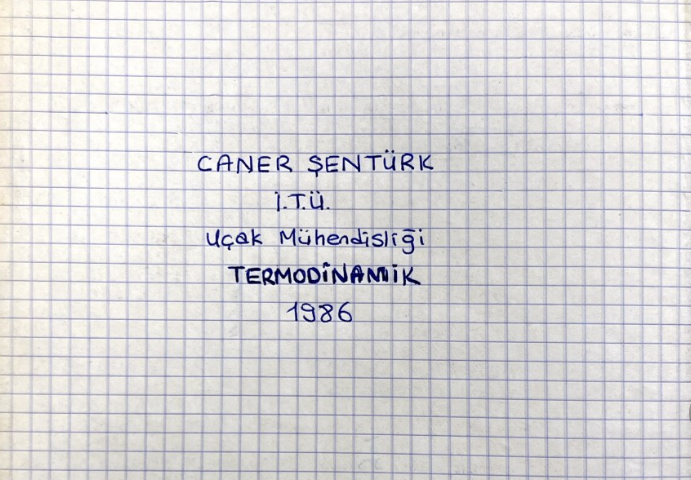 CANER ŞENTÜRK
İ.T.Ü.
Uçak Mühendisliği
TERMODİNAMİK
1986